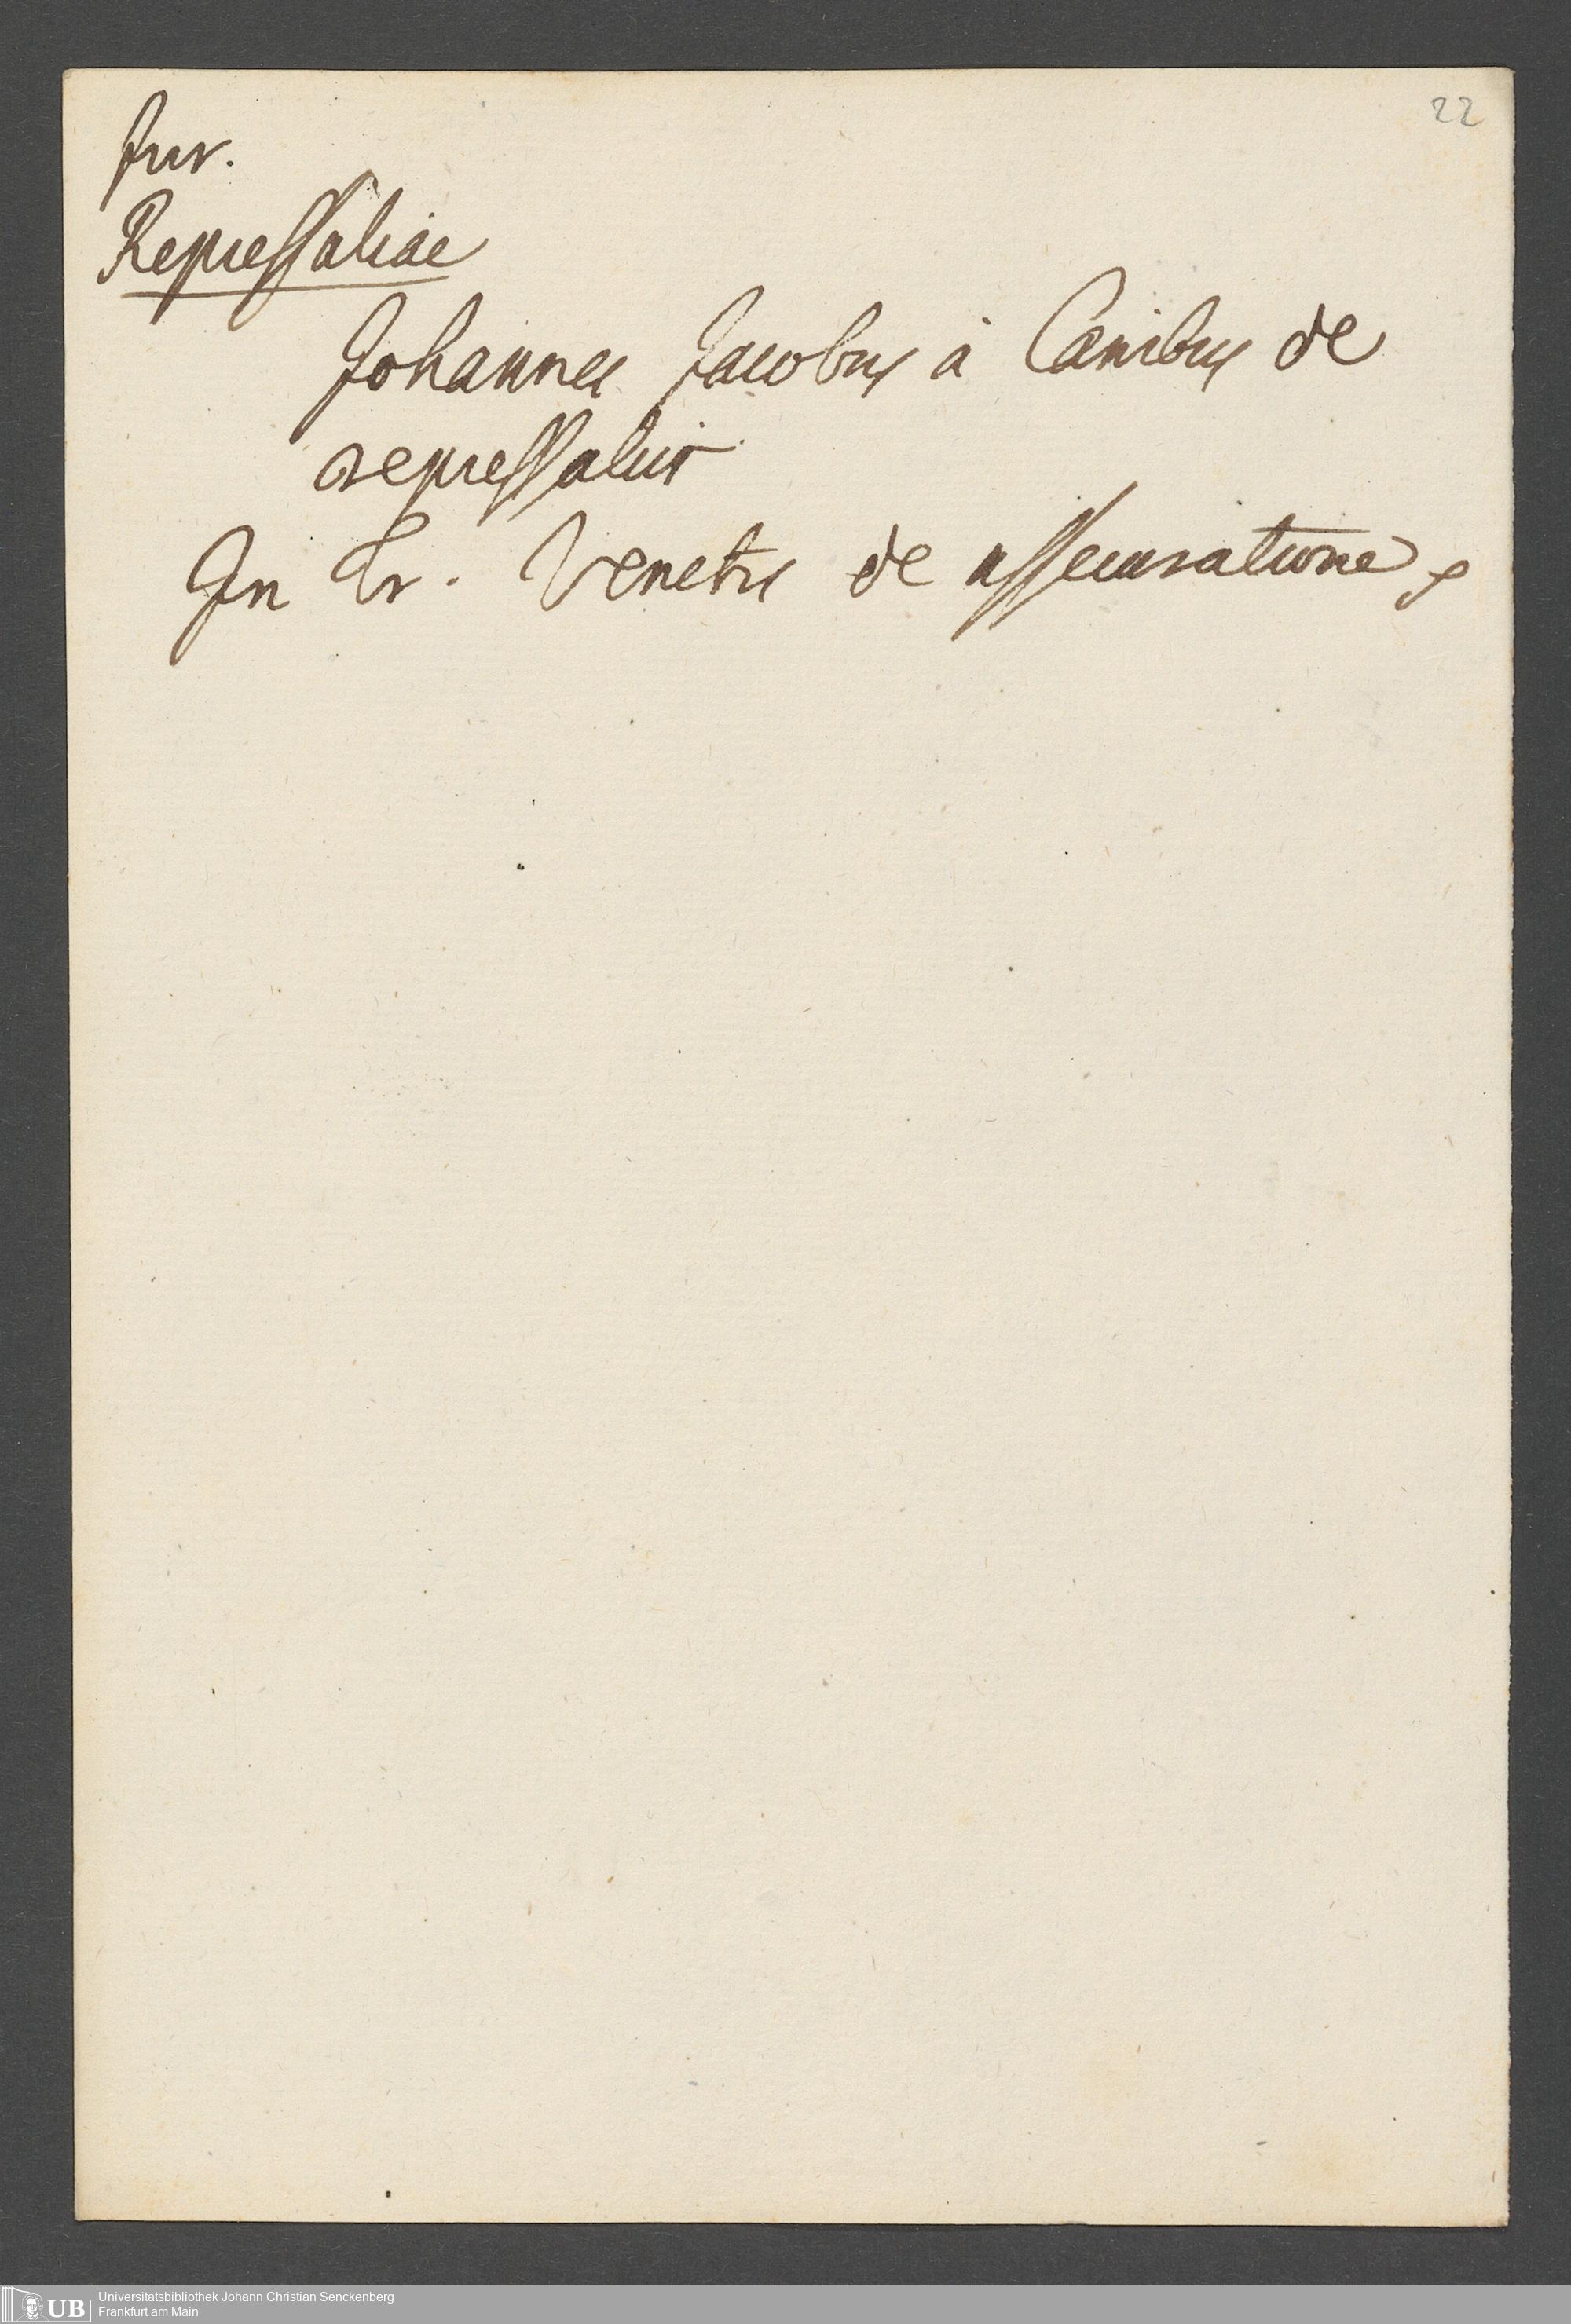 22
Jur.
Repressaliae
Johannes Jacobus à Canibus de
repressaliis
In Tr. Venetis de assecuratione
UB
Universitätsbibliothek Johann Christian Senckenberg
Frankfurt am Main